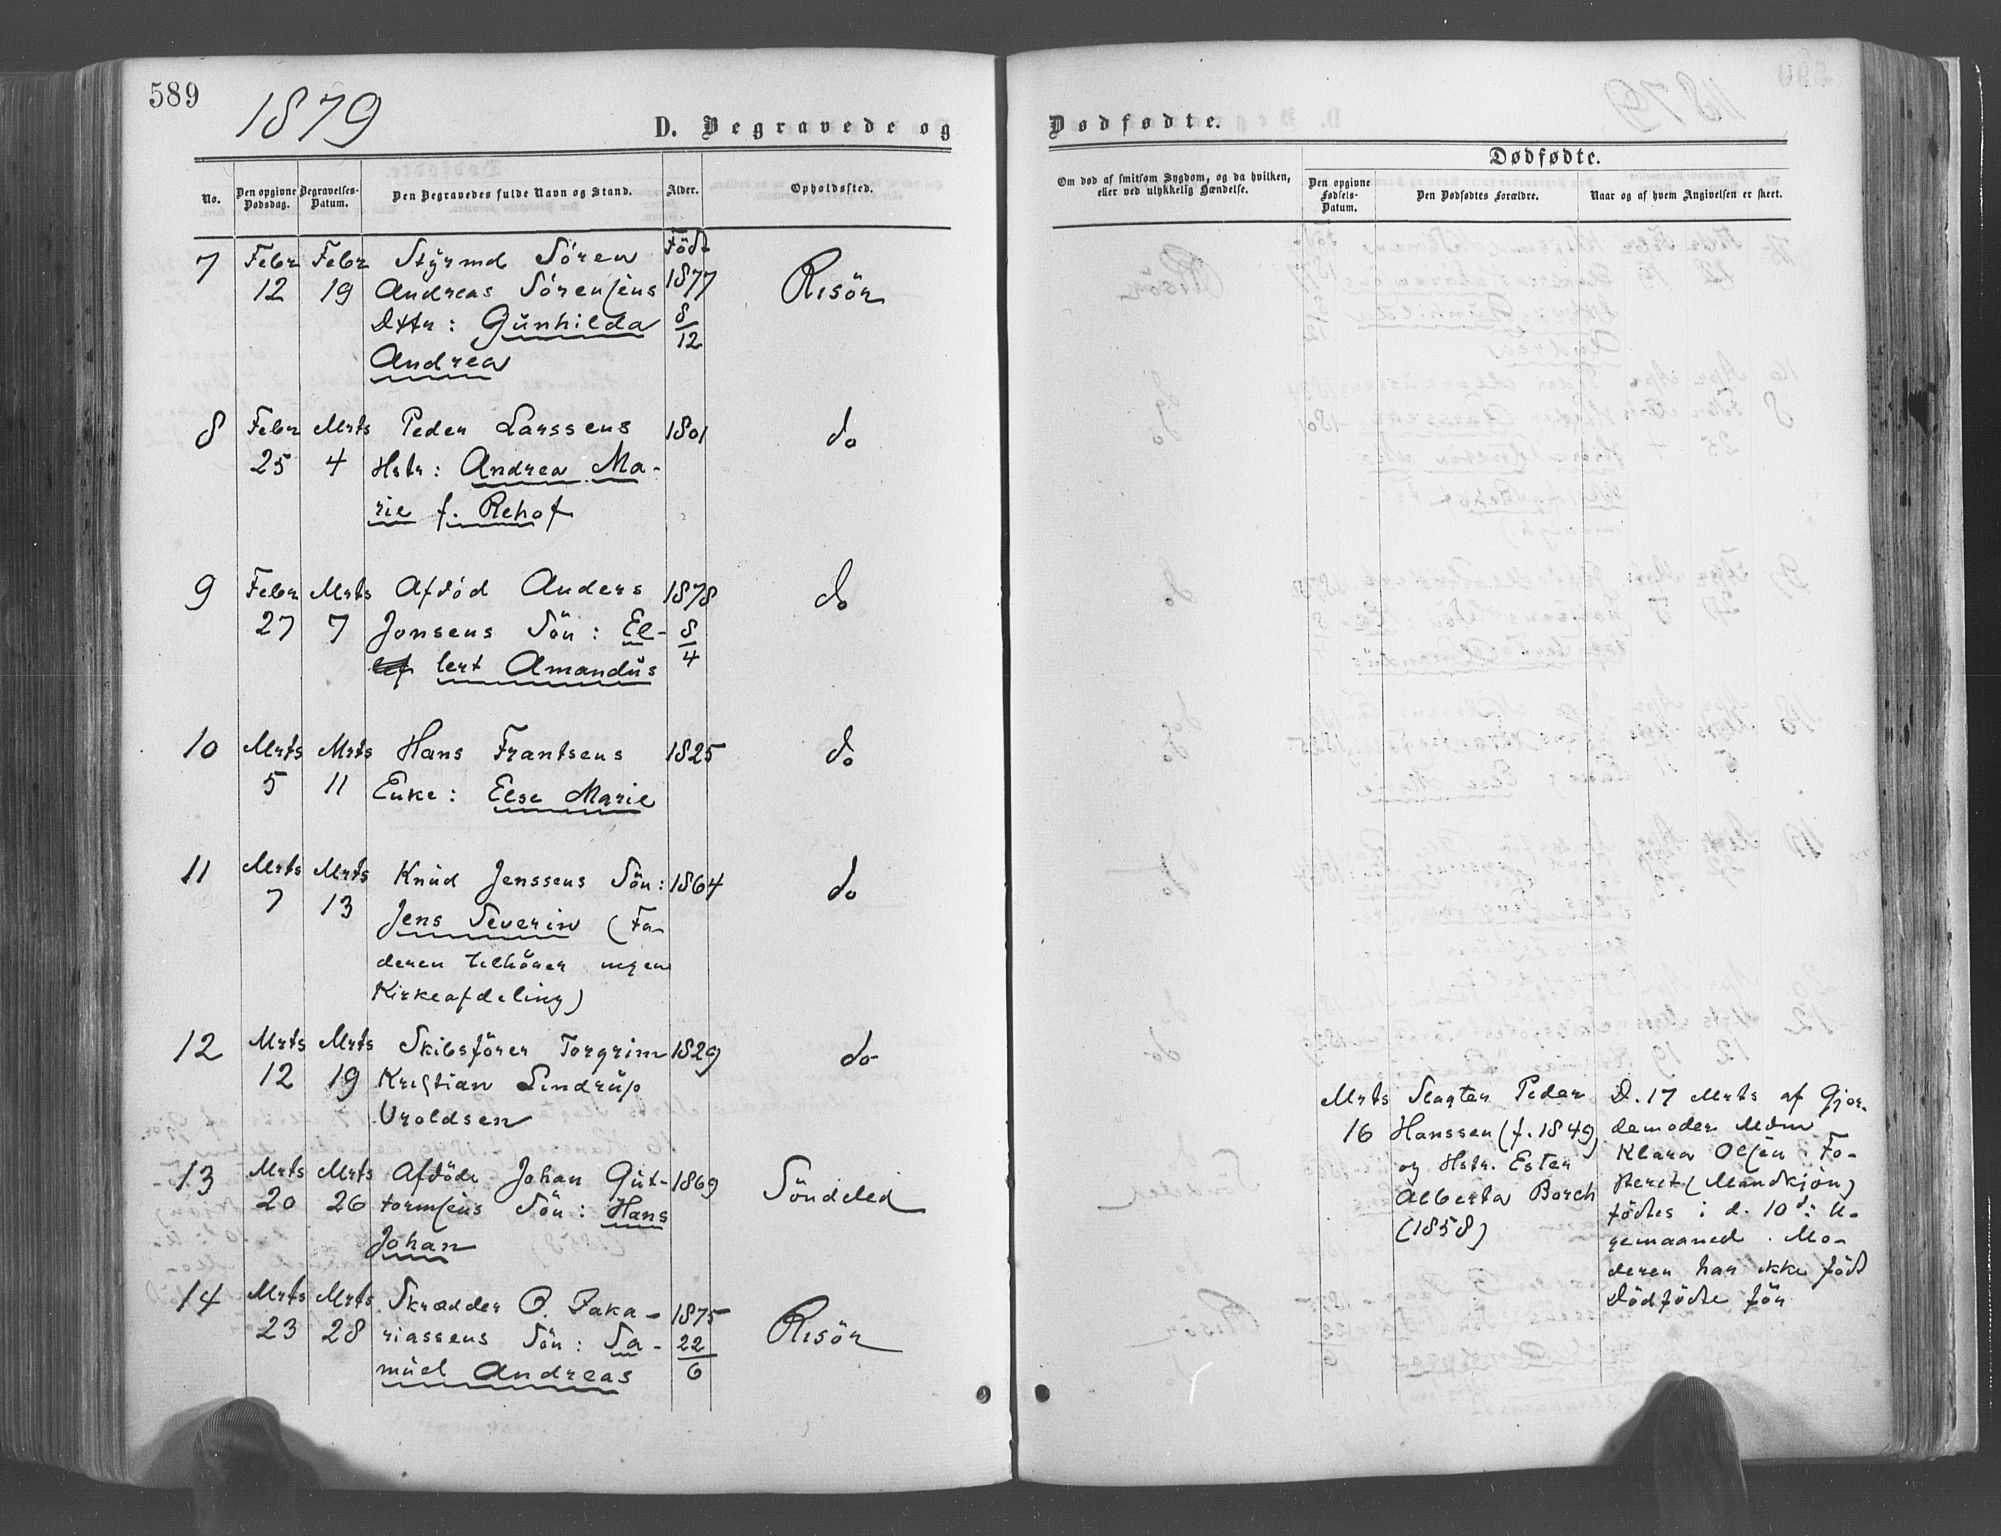 589
1879
D. Begravede og
No.
Den opgivne Dødsdag.
Begravelses-Datum.
Den Begravedes fulde Navn og Stand.
Alder.
Opholdssted.
7 Febr Febr Styrmd Sören Födt
12 19 Andreas Sörensens 1877
Dttr: Gunhilda 8/12 Risör
Andrea
8 Febr Mrts Peder Larssens 1801 do
25 4 Hstr: Andrea Ma-
rie f. Rehof
9 Febr Mrts Afdöd Anders 1878 do
27 7 Jonsens Sön: El- 8/4
lert Amandus
10 Mrts Mrts Hans Frantsens 1825 do
5 11 Enke: Else Marie
11 Mrts Mrts Knud Jenssens Sön: 1864 do
7 13 Jens Severin (Fa-
deren tilhörer ingen
Kirkeafdeling)
12 Mrts Mrts Skibsförer Torgrim 1829 do
12 19 Kristian Lindrup
Uroldsen
13 Mrts Mrts Afdöde Johan Gut- 1869 Söndeled
20 26 tormsens Sön: Hans
Johan
14 Mrts Mrts Skrædder P. Zaka- 1875
23 28 riassens Sön: Sa- 22/6 Risör
muel Andreas
Dødfødte.
Om død af smitsom Sygdom, og da hvilken,
eller ved ulykkelig Hændelse.
Dødfødte.
Den opgivne Fødsels-Datum.
Den Dødfødtes Forældre.
Naar og af hvem Angivelsen er skeet.
Mrts Slagter Peder D. 17 Mrts af Gjor-
16 Hanssen (f. 1849) demoder Mdm
og Hstr. Ester Klara Olsen. Fo-
Alberta Borch steret (Mandkjön)
(1858) födtes i d. 10d: U-
gemaaned. Mo-
deren har ikke födt
Dödfödte för